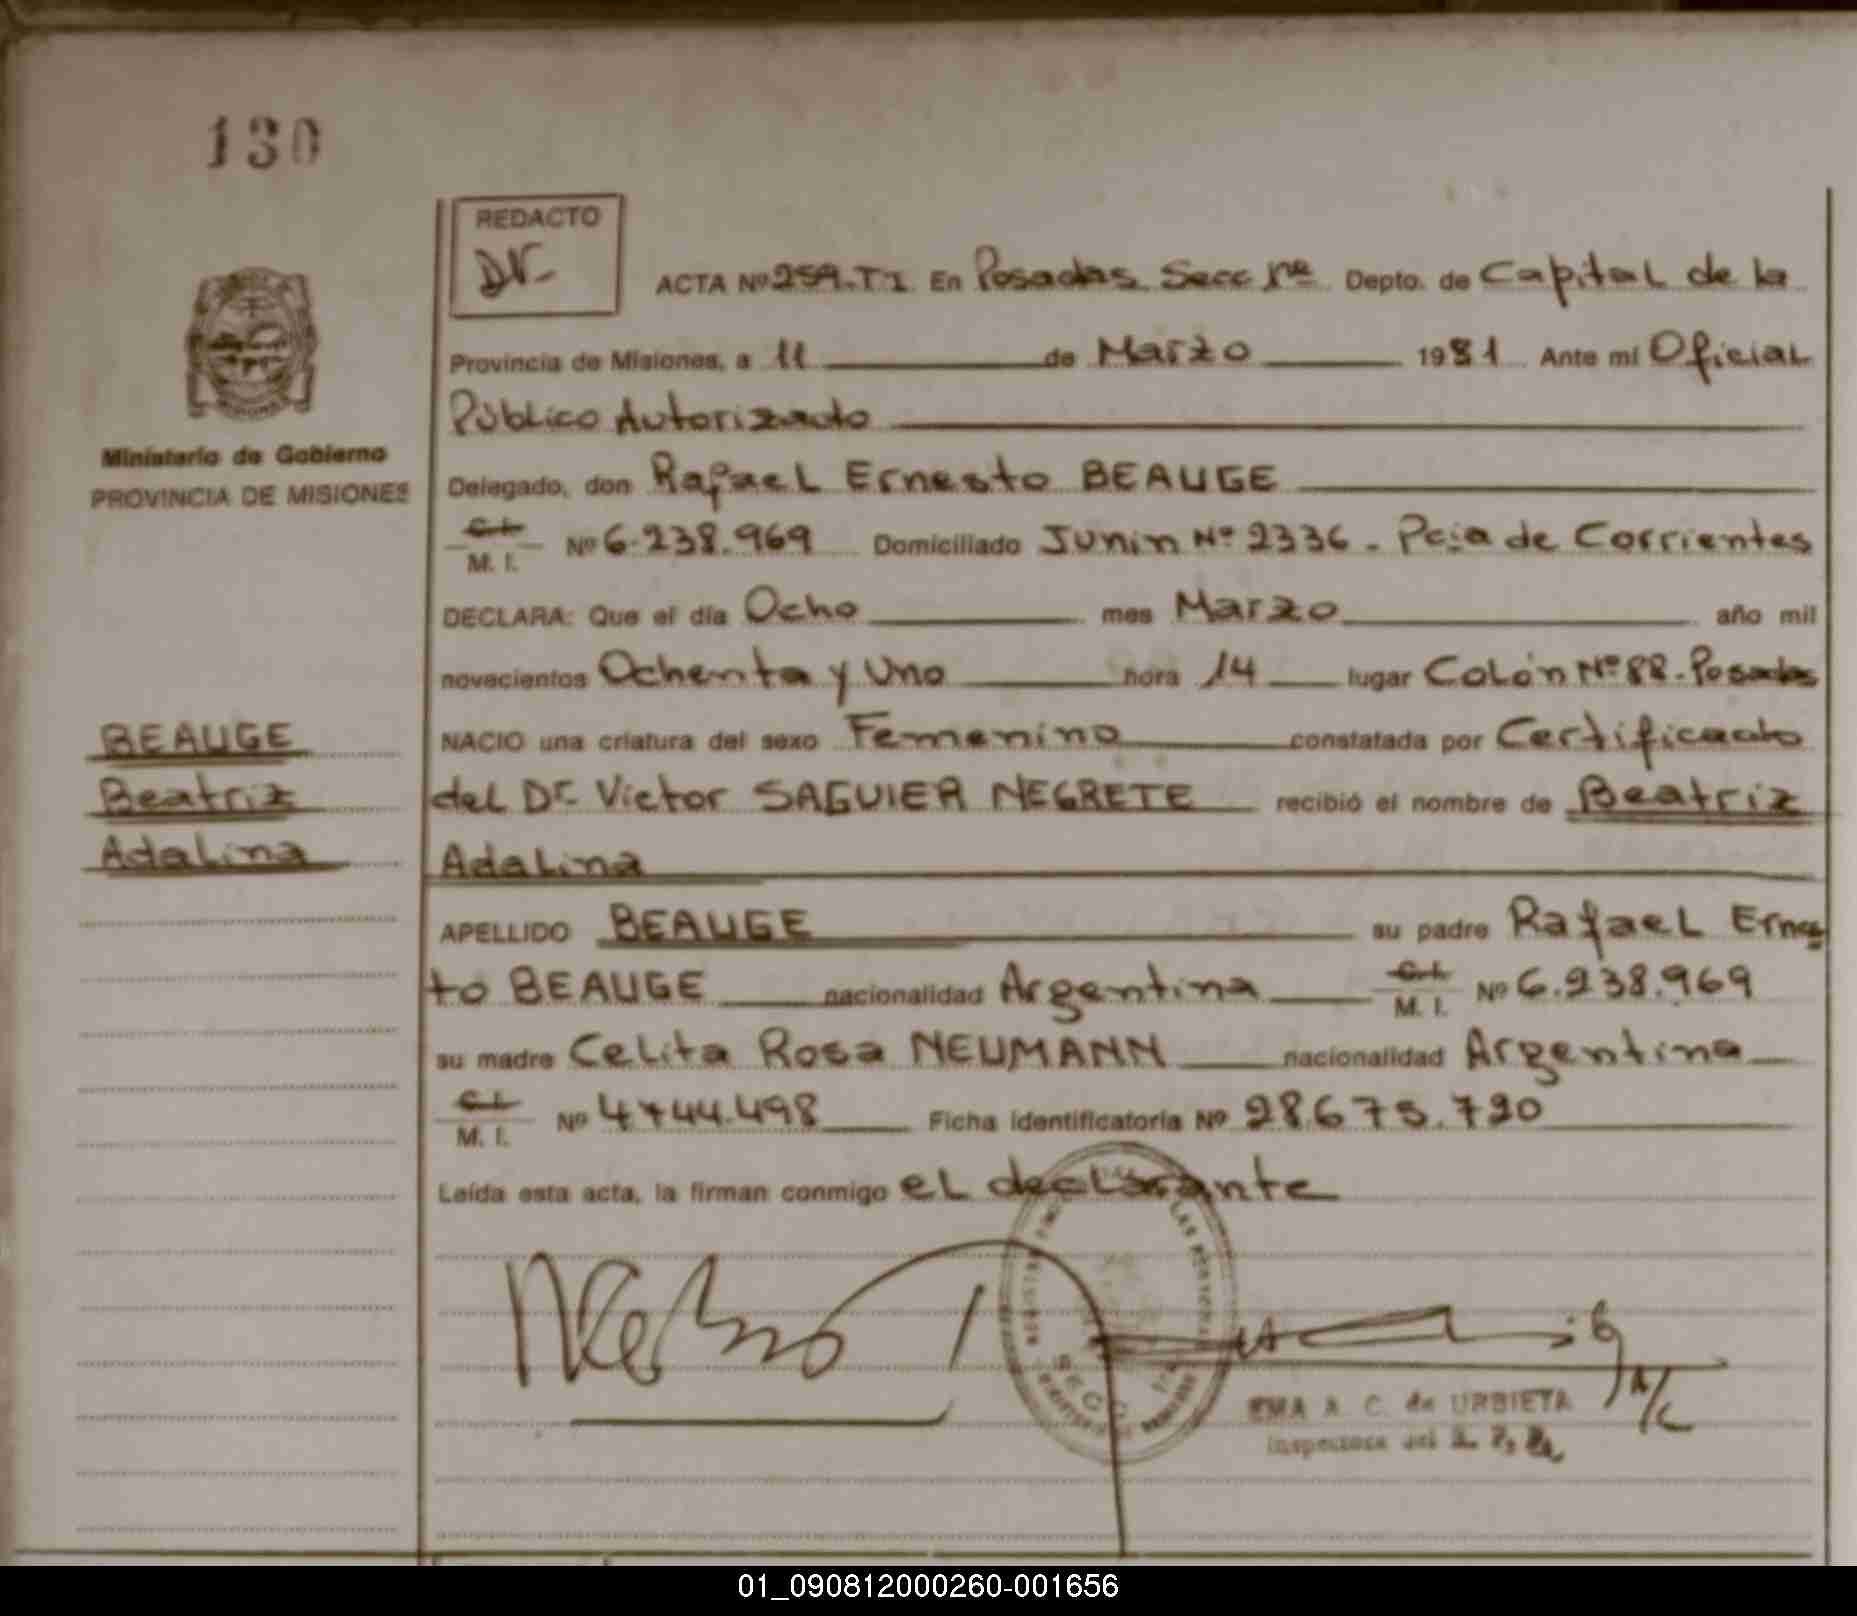 130
REDACTO
ACTA Nº 259.T.I. En Posadas Secc 1ra Depto. de Capital de la
Provincia de Misiones, a 11 de Marzo 1981 Ante mí Oficial
Público Autorizado
Ministerio de Gobierno
PROVINCIA DE MISIONES
Delegado, don Rafael Ernesto BEAUGE
C.I.
M. I. Nº 6.238.969 Domiciliado Junin Nº 2336 - Pcia de Corrientes
DECLARA: Que el día Ocho mes Marzo año mil
novecientos Ochenta y Uno hora 14 lugar Colón Nº 88. Posadas
BEAUGE
Beatriz
Adalina
NACIO una criatura del sexo Femenino constatada por Certificado
del Dr Victor SAGUIER NEGRETE recibió el nombre de Beatriz
Adalina
APELLIDO BEAUGE su padre Rafael Ernes
to BEAUGE nacionalidad Argentina C.I. M. I. Nº 6.238.969
su madre Celita Rosa NEUMANN nacionalidad Argentina
C.I.
M. I. Nº 4744.498 Ficha identificatoria Nº 28.675.720
Leída esta acta, la firman conmigo el declarante
EMA A. C. de URBIETA
01_090812000260-001656